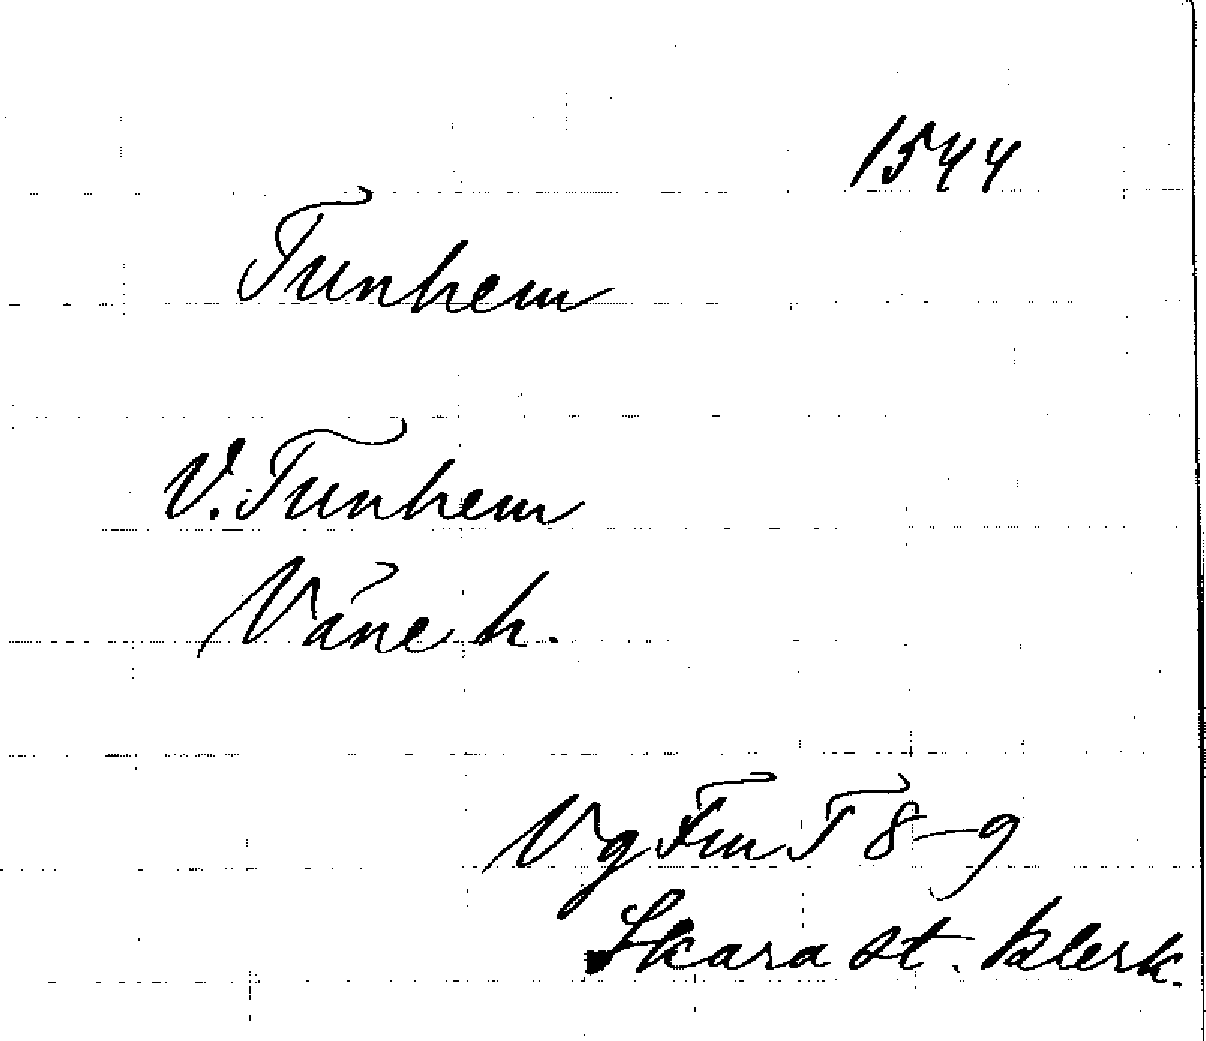 1544
Tunhem
V. Tunhem
Väne h.
Vg Fm T 8-9
Skara st. klerk.